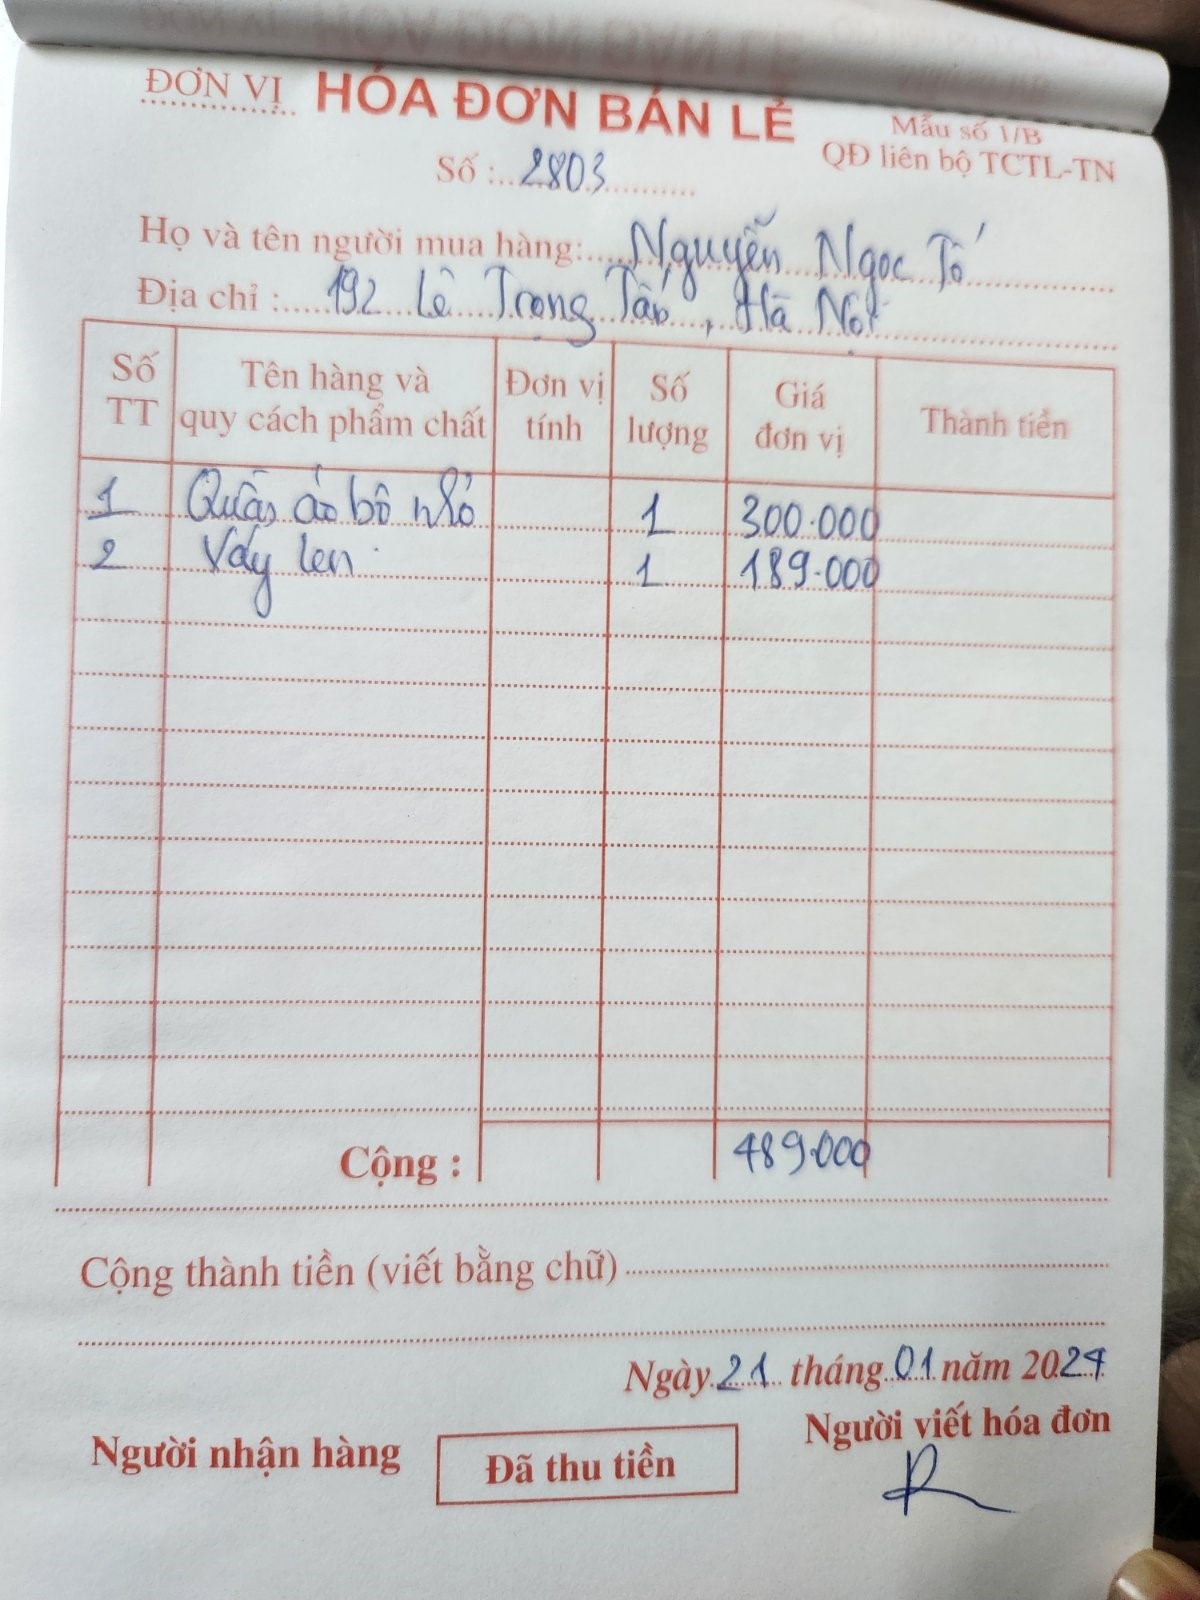 ĐƠN VỊ HÓA ĐƠN BÁN LẺ Mẫu số 1/B
QĐ liên bộ TCTL-TN
Số : 2803
Họ và tên người mua hàng: Nguyễn Ngọc Tố
Địa chỉ : 192 Lê Trọng Tấn, Hà Nội
Số TT Tên hàng và quy cách phẩm chất Đơn vị tính Số lượng Giá đơn vị Thành tiền
1 Quần áo bộ nhỏ 1 300.000
2 Váy len 1 189.000
Cộng : 489.000
Cộng thành tiền (viết bằng chữ)
Ngày 21 tháng 01 năm 2024
Người nhận hàng Đã thu tiền Người viết hóa đơn